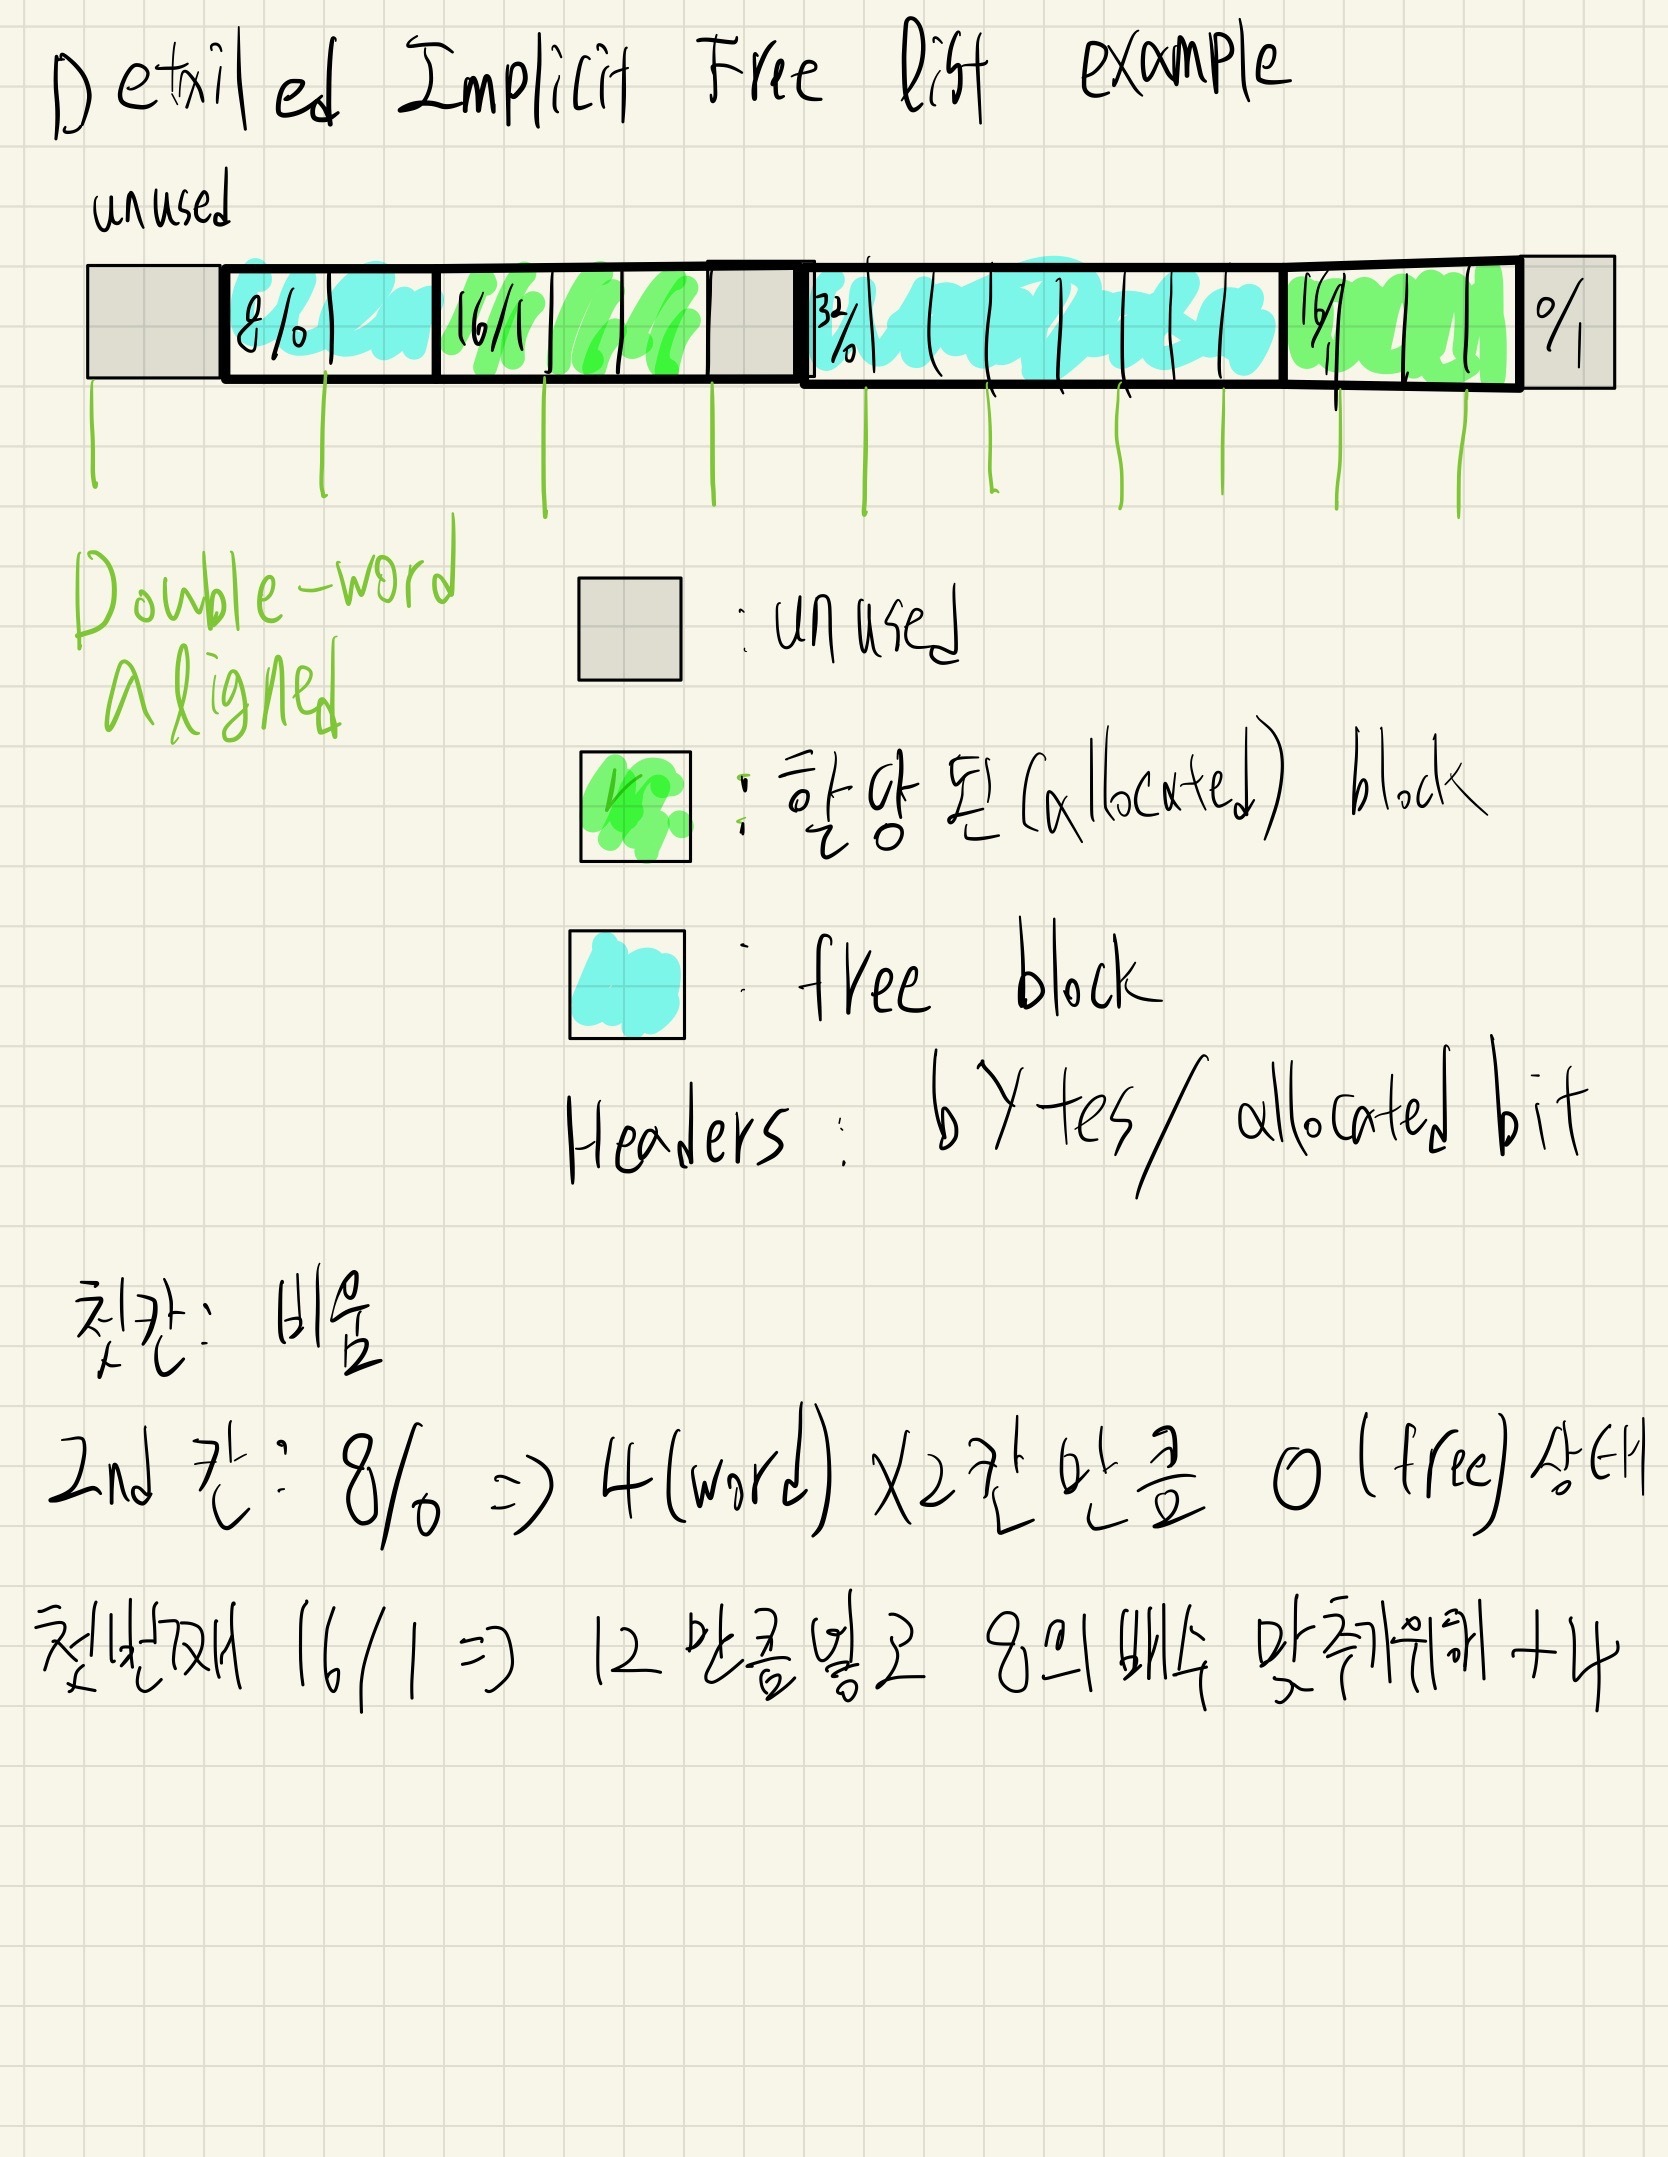 Detailed Implicit Free list example
unused
8/0 16/1 32/0 16/1 0/1
Double-word
aligned
: unused
: 할당된(allocated) block
: free block
Headers : bytes/allocated bit
첫칸: 비움
2nd 칸: 8/0 => 4(word) X2칸 만큼 0 (free) 상태
첫번째 16/1 => 12 만큼 별로 8의 배수 맞추기위해 +4